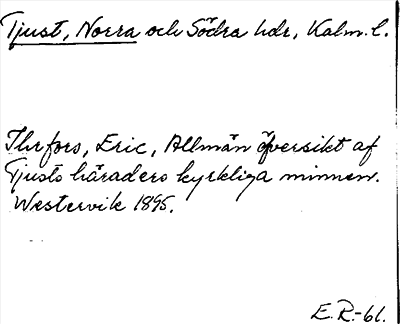 Tjust, Norra och Södra hdr, Kalm. l.
Ihrfors, Eric, Allmän översikt af
Tjusts häraders kyrkliga minnen.
Westervik 1895.
E.R.-61.